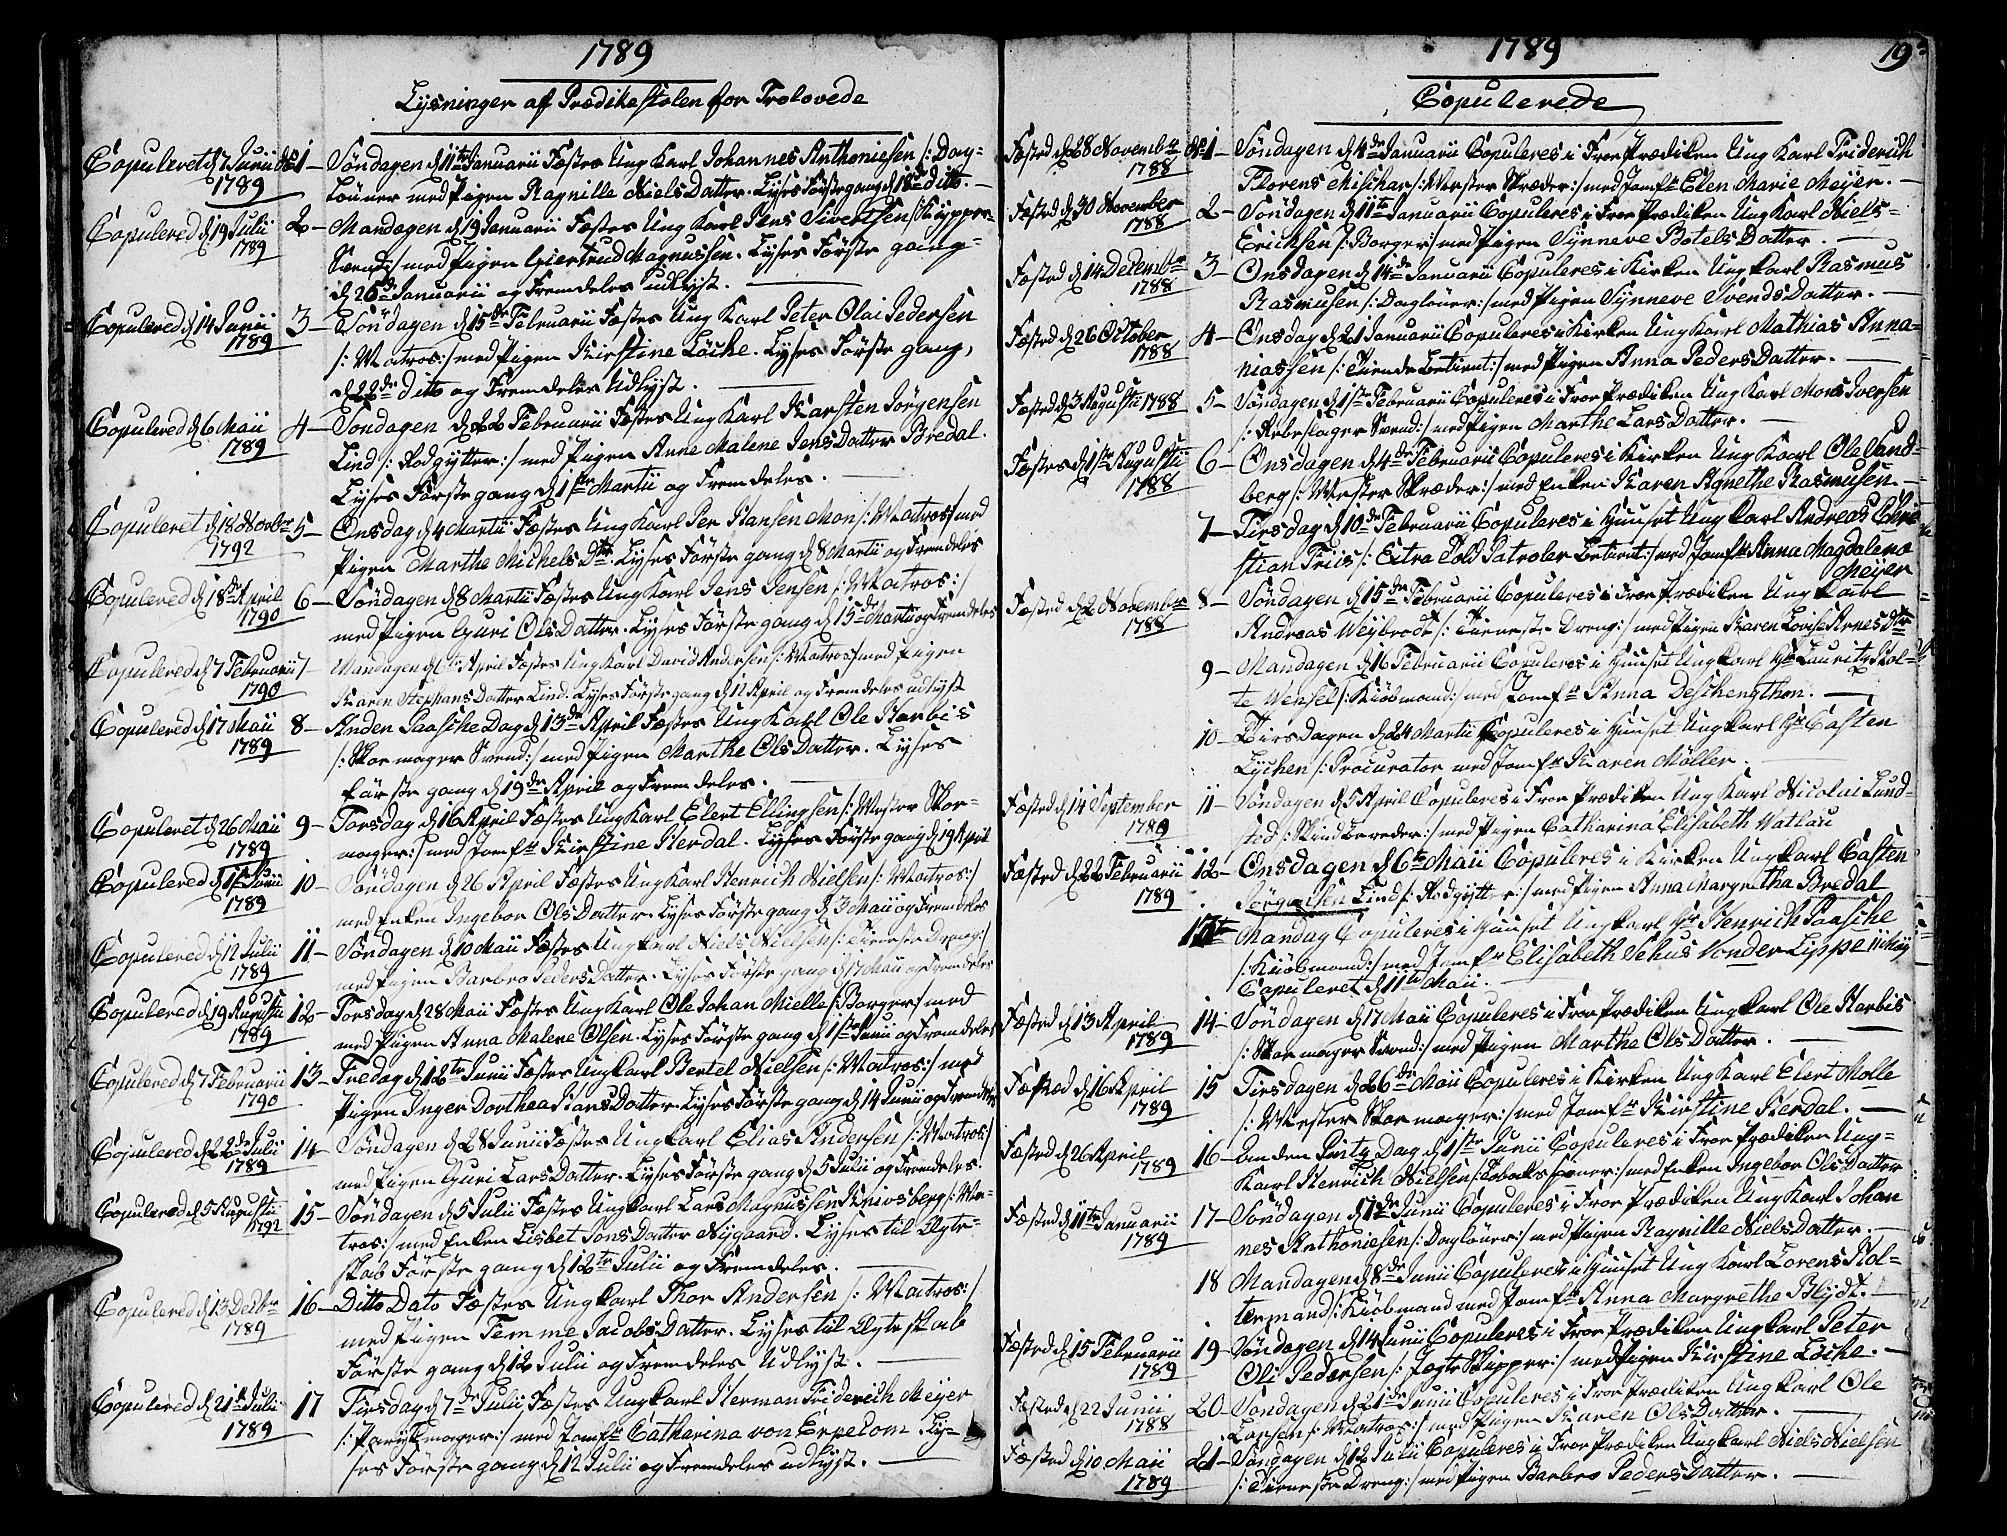 1789
Lysninger af Prædikestolen for Trolovede
Copuleret d 7 Junii 1789
No 1 - Søndagen d 11te Januarii Fæstes Ung Karl Johannes Anthoniesen /: Dag-
Lønner med Pigen Ragnille Niels Datter. Lyses Første gang d 18de ditto. -
Copulered d 19 Julii 1789
2 - Mandagen d 19 Januarii Fæstes Ung Karl Jens Sivertsen /: Kypper
Svend :/ med Pigen Giertrud Magnussen. Lyses Første gang
d 26de Januarii og Fremdeles udlyst.
Copulered d 14 Junii 1789
3 - Søndagen d 15de Februarii Fæstes Ung Karl Peter Olai Pedersen
/: Matros :/ med Pigen Kirstine Löcke. Lyses Første gang,
d 22de Ditto og Fremdeles Udlyst.
Copulered d 6 Maii 1789
4 - Søndagen d 22 Februarii Fæstes Ung Karl Karsten Jørgensen
Lind /: Rodgytter :/ med Pigen Anne Malene Jens Datter Bredal.
Lyses Første gang d 1ste Martii og Fremdeles.
Copuleret d 18 Novbr 1792
5 - Onsdag d 4 Martii Fæstes Ung Karl Per Hansen Mon /: Matros :/ med
Pigen Marthe Michels Dtr. Lyses Første gang d 8 Martii og Fremdeles
Copulered d 18de April 1790
6 - Søndagen d 8 Martii Fæstes Ung Karl Jens Jensen /: Matros :/
med Pigen Guri Ols Datter. Lyses Første gang d 15de Martii og Fremdeles
Copulered d 7 Februarii 1790
7 - Mandagen d 6te April Fæstes Ung Karl David Andersen /: Matros :/ med Pigen
Karen Stephans Datter Lind. Lyses Første gang d 12 April og Fremdeles udlyst
Copulered d 17 Maii 1789
8 - Anden Paasche Dag d 13de April Fæstes Ung Karl Ole Harbis
/: Skomager Svend :/ med Pigen Marthe Ols Datter. Lyses
første gang d 19de April og Fremdeles.
Copuleret d 26 Maii 1789
9 - Torsdag d 16 April Fæstes Ung Karl Elert Ellingsen /: Mester Skor-
mager :/ med Jomfr Kirstine Herdal. Lyses Første gang d 19 April
Copulered d 1ste Junii 1789
10 - Søndagen d 26 April Fæstes Ung Karl Henrich Nielsen /: Matros :/
med Enken Ingebor Ols Datter. Lyses Første gang d 3 Maii og Fremdeles
Copulered d 12 Julii 1789
11 - Søndagen d 10 Maii Fæstes Ung Karl Niels Nielsen /: Tieneste Dreng :/
med Pigen Barbro Peders Datter. Lyses Første gang d 17 Maii og Fremdeles
Copulered d 19 Augusti 1789
12 - Torsdag d 28 Maii Fæstes Ung Karl Ole Johan Mielle /: Borger :/ med
med Pigen Anna Malene Olsen. Lyses Første gang d 1ste Junii og Fremdeles
Copulered d 7 Februarii 1790
13 - Fredag d 12te Junii Fæstes Ung Karl Bertel Nielsen /: Matros :/ med
Pigen Inger Dorthea Hans Datter. Lyses Første gang d 14 Junii og Fremdeles
Copulered d 22de Julii 1789
14 - Søndagen d 28 Junii Fæstes Ung Karl Elias Andersen /: Matros :/
med Pigen Guri Lars Datter. Lyses Første gang d 5 Julii og Fremdeles.
Copulered d 5 Augusti 1792
15 - Søndagen d 5 Julii Fæstes Ung Karl Lars Magnussen Knivsberg /: Ma-
tros :/ med Enken Lisbet Jons Datter Nygaard. Lyses til Ægte-
skab Første gang d 12te Julii og Fremdeles.
Copulered d 13 Decbr 1789
16 - Ditto Dato Fæstes Ung Karl Thor Andersen /: Matros :/
med Pigen Femme Jacobs Datter. Lyses til Ægteskab
Første gang d 12 Julii og Fremdeles Udlyst.
Copulered d 21 Julii 1789
17 Tirsdag d 7de Julii Fæstes Ung Karl Herman Friderich Meyer
/: Parykmager :/ med Jomfr Catharina von Erpecom. Ly-
ses Første gang d 12 Julii og Fremdeles udlyst.
1789
19
Copulerede
Fæsted d 28 November 1788
No 1 - Søndagen d 4de Januarii Copuleres i Froe Prædiken Ung Karl Friderich
Florens Mischar /: Mester Skræder :/ med Jomfr Elen Marie Meyer.
Fæsted d 30 November 1788
2 - Søndagen d 11te Januarii Copuleres i Froe Prædiken Ung Karl Niels
Ericksen /: Borger :/ med Pigen Synneve Botels Datter.
Fæsted d 14 Decembr 1788
3 - Onsdagen d 14de Januarii Copuleres i Kirken Ung Karl Rasmus
Rasmusen /: Dagløner :/ med Pigen Synneve Svends Datter.
Fæsted d 26 October 1788
4 - Onsdag d 21 Januarii Copuleres i Kirken Ung Karl Mathias Anna-
niassen /: Tiende Betient :/ med Pigen Anna Peders Datter.
Fæsted d 3 Augustii 1788
5 - Søndagen d 1ste Februarii Copuleres i Froe Prædiken Ung Karl Mons Iversen
/: Rebslager Svend :/ med Pigen Marthe Lars Datter.
Fæstes d 1ste Augustii 1788
6 - Onsdagen d 4de Februarii Copuleres i Kirken Ung Karl Ole Sand-
berg /: Mester Skræder :/ med Enken Karen Agnethe Rasmusen.
7 - Tirsdag d 10de Februarii Copuleres i Huuset Ung Karl Andreas Chri-
stian Friis /: Extra Told Patroler Betient :/ med Jomfr Anna Magdalena
Meyer
Fæsted d 2 November 1788
8 - Søndagen d 15de Februarii Copuleres i Froe Prædiken Ung Karl
Andreas Weybrodt /: Tieneste Dreng :/ med Pigen Karen Lovise Arnes Dtr
9 - Mandagen d 16 Februarii Copuleres i Huuset Ung Karl Hr Lauritz Hol-
te Wensel /: Kiøbmand :/ med Jomfr Anna Deschengthon.
10 - Tirsdagen d 24 Martii Copuleres i Huuset Ung Karl Hr Casten
Lychen /: Procurator med Jomfr Karen Möller.
Fæsted d 14 September 1789
11 - Søndagen d 5 April Copuleres i Froe Prædiken Ung Karl Nicolai Lund-
sted /: Skind Bereder :/ med Pigen Catharina Elisabeth Watlau
Fæsted d 22 Februarii 1789
12 - Onsdagen d 6te Maii Copuleres i Kirken Ung Karl Casten
Jørgensen Lind /: Rodgytter :/ med Pigen Anna Margretha Bredal
13 Mandag Copuleres i Huuset Ung Karl Hr Henrich Paasche
/: Kiøbmand :/ med Jomfr Elisabeth Sehus Von der Lippe 11 Maij
Copuleret d 11te Maii.
Fæsted d 13 April 1789
14 - Søndagen d 17 Maii Copuleres i Froe Prædiken Ung Karl Ole Harbis
/: Skomager Svend :/ med Pigen Marthe Ols Datter.
Fæsted d 16 April 1789
15 Tirsdagen d 26de Maii Copuleres i Kirken Ung Karl Elert Molle
/: Mester Skormager :/ med Jomfr Kirstine Herdal.
Fæsted d 26 April 1789
16 - Anden Pintz Dag d 1ste Junii Copuleres i Froe Prædiken Ung-
Karl Henrich Nielsen /: :/ med Enken Ingebor Ols Datter
Fæsted d 11te Januarii 1789
17 - Søndagen d 7de Junii Copuleres i Froe Prædiken Ung Karl Johan
nes Anthoniesen /: Dagløner :/ med Pigen Ragnille Niels Datter.
18 Mandagen d 8de Junii Copuleres i Huuset Ung Karl Lorens Hol-
termand /: Kiøbmand med Jomfr Anna Margrethe Blydt.
Fæsted d 15 Februarii 1789
19 - Søndagen d 14 Junii Copuleres i Froe Prædiken Ung Karl Peter
Oli Pedersen /: Jegte Skipper :/ med Pigen Kirstine Löcke.
Fæsted d 22 Junii 1788
20 - Søndagen d 21de Junii Copuleres i Froe Prædiken Ung Karl Ole
Larsen /: Matros :/ med Pigen Karen Ols Datter.
Fæsted d 10 Maii 1789
21 - Søndagen d 12 Julii Copuleres i Froe Prædiken Ung Karl Niels Nielsen
/: Tieneste Dreng :/ med Pigen Barbro Peders Datter.